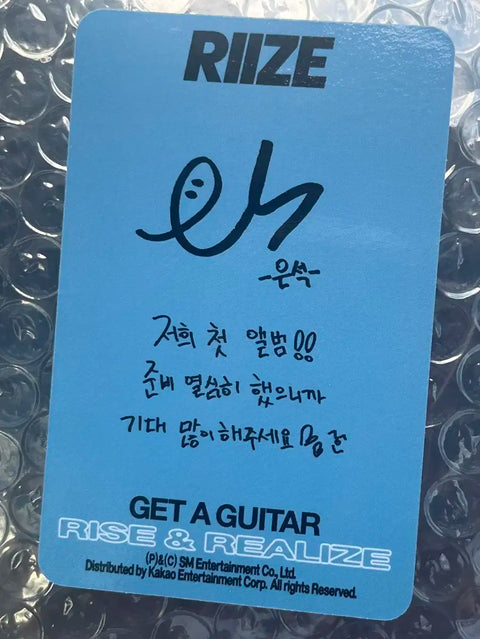 RIIZE
-은석-
저희 첫 앨범!!
준비 열심히 했으니까
기대 많이 해주세요
GET A GUITAR
RISE & REALIZE
(P)&(C) SM Entertainment Co., Ltd.
Distributed by Kakao Entertainment Corp. All rights Reserved.